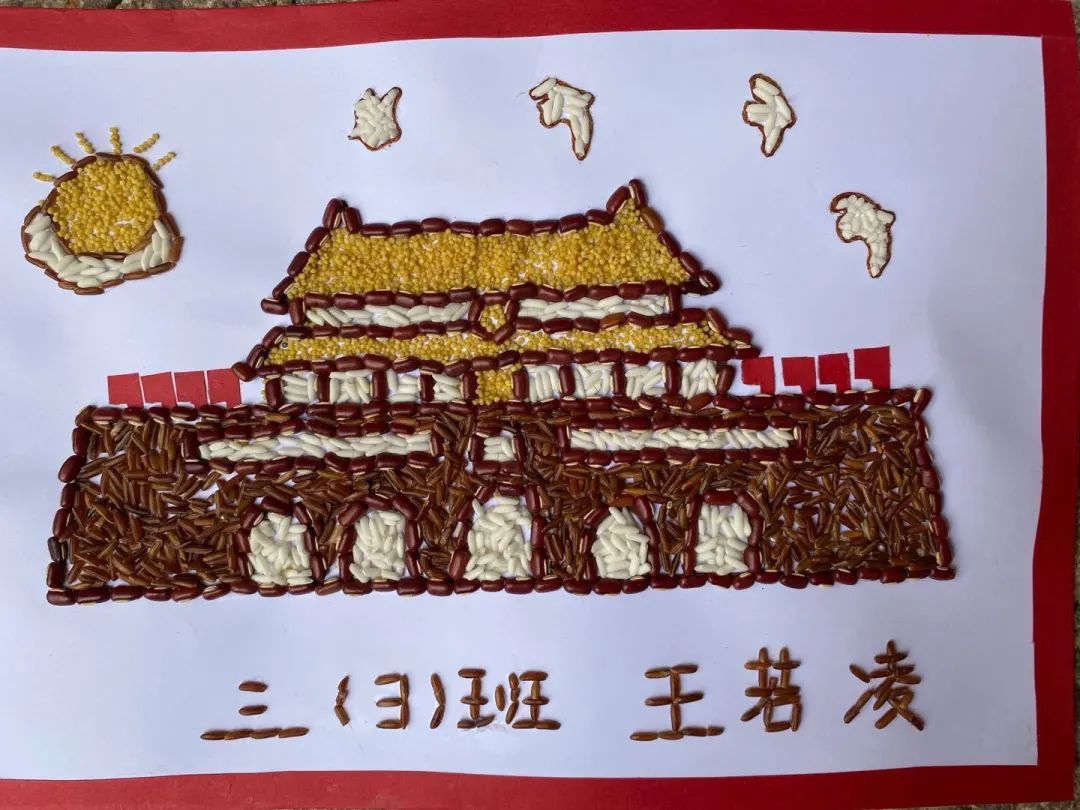 三(3)班 王若凌